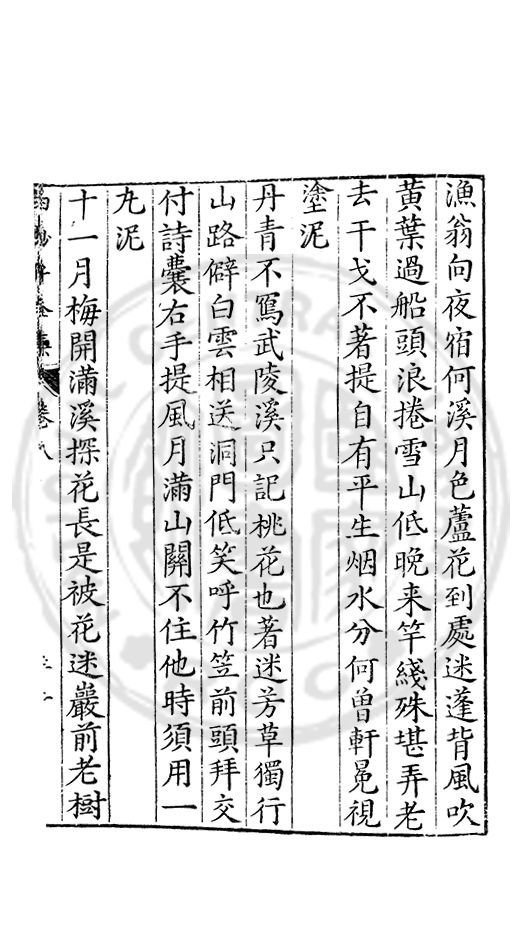 漁翁向夜宿何溪月色蘆花到處迷蓬背風吹
黄葉過船頭浪捲雪山低晚来竿綫殊堪弄老
去干戈不著提自有平生烟水分何曽軒冕視
塗泥
丹青不冩武陵溪只記桃花也著迷芳草獨行
山路僻白雲相送洞門低笑呼竹笠前頭拜交
付詩囊右手提風月滿山關不住他時須用一
丸泥
十一月梅開滿溪探花長是被花迷巖前老樹